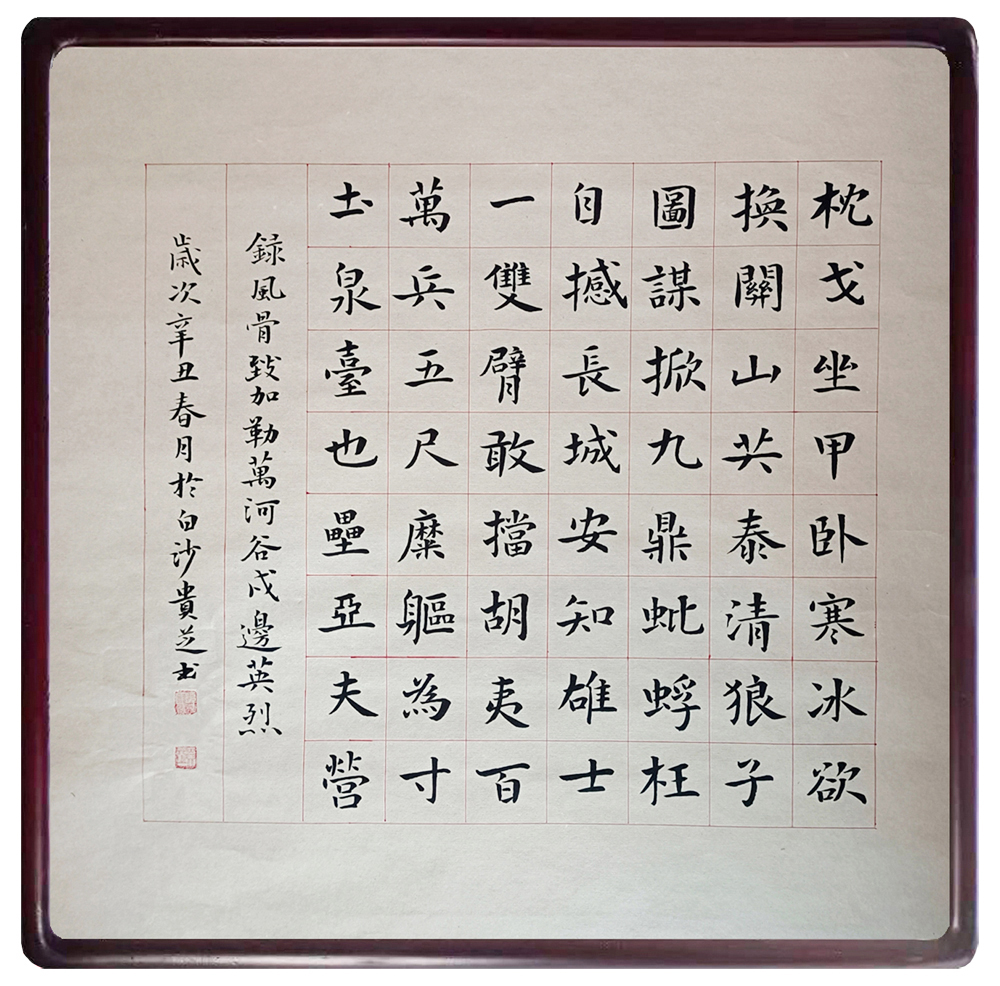 枕戈坐甲卧寒冰欲
換關山共泰清狼子
圖謀掀九鼎蚍蜉枉
自撼長城安知雄士
一雙臂敢擋胡夷百
萬兵五尺糜軀為寸
土泉臺也壘亞夫營
録風骨致加勒萬河谷戍邊英烈
歲次辛丑春月於白沙貴芝书